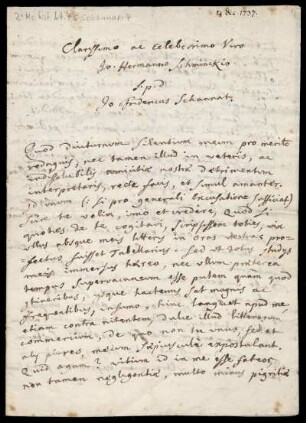 2° Ms. hist. litt. 4 [Schannat
4 Dec 1737.
Clarissimo ac celeberrimo Viro
Jo. Hermanno Schminckio
S. p. d.
Jo. Fridericus Schannat.
Quod diuturnum silentium meum pro merito
redarguis, nec tamen illud in veteris, ac
indissolubilis amicitiæ nostræ detrimentum
interpretaris, recte facis, et simul amanter.
Id unum (: si pro generali Excusatione sufficiat)
scire te volui, imo et credere, Quod si
quoties de te cogitavi, scripsissem toties, vix
ullus absque meis litteris in oras vestras pro-
fectus fuisset Tabellarius: sed et totus studiis
meis immersus hæreo, nec ullum præterea
tempus supervacaneum esse putem quam quod
itineribus, usque hactenus sat magnis ac
frequentibus, insumo; hinc languet apud me
etiam contra nitentem, dulce illud litterarum
commercium, de quo non tu unus, sed et
alii plures, mecum sæpiuscule expostulant.
Quid agam? vitium id in me esse fateor,
non tamen negligentiæ, multo minus pigritiæ